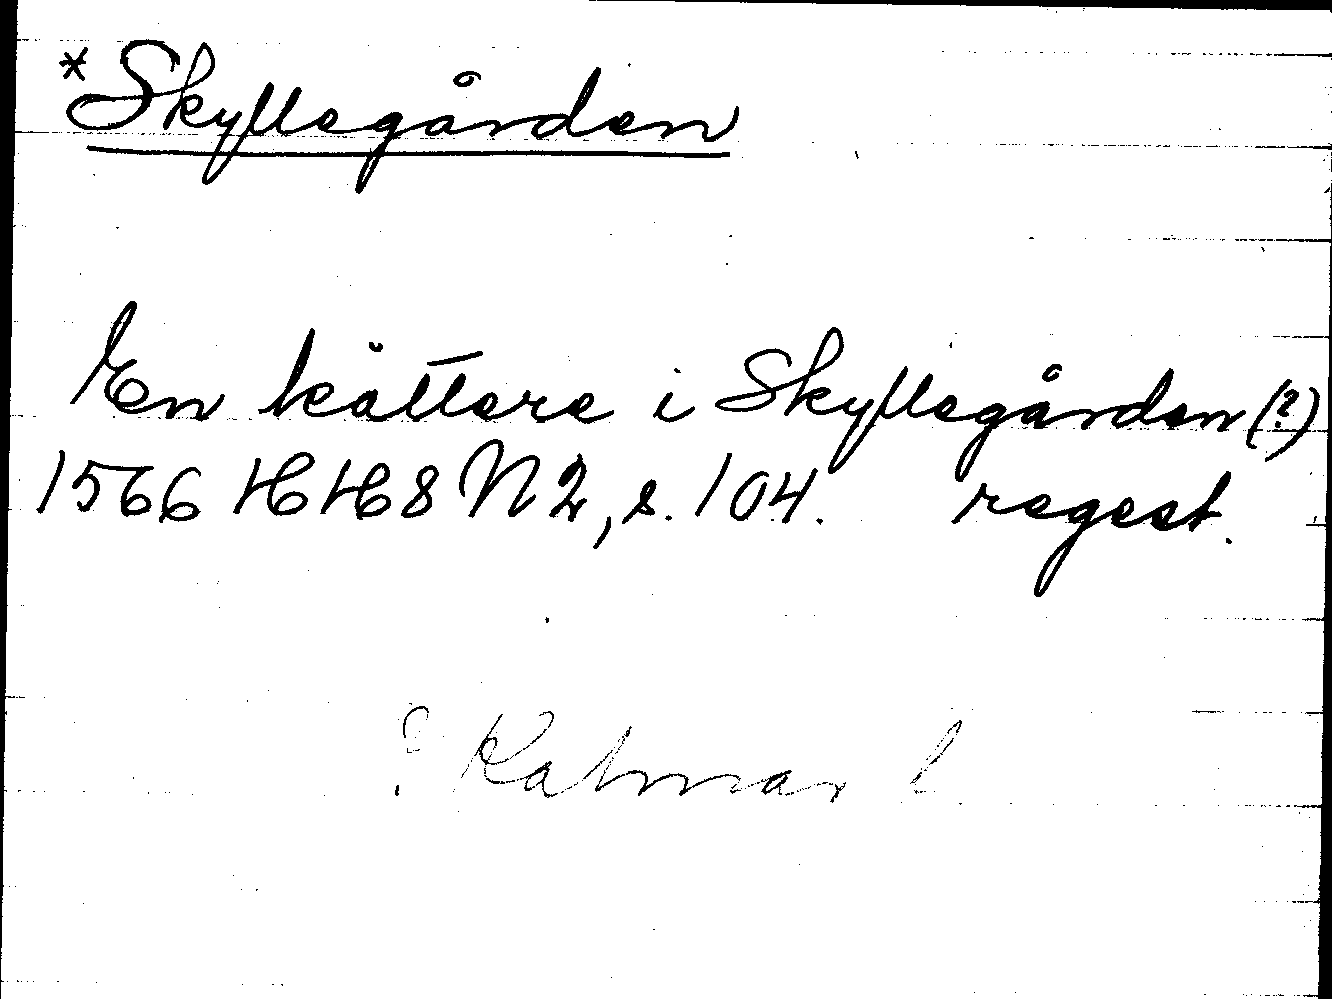 *Skyllegården
En kättere i Skyllegården (?)
1566 HH8 N2, s. 104. regest.
? Kalmar l